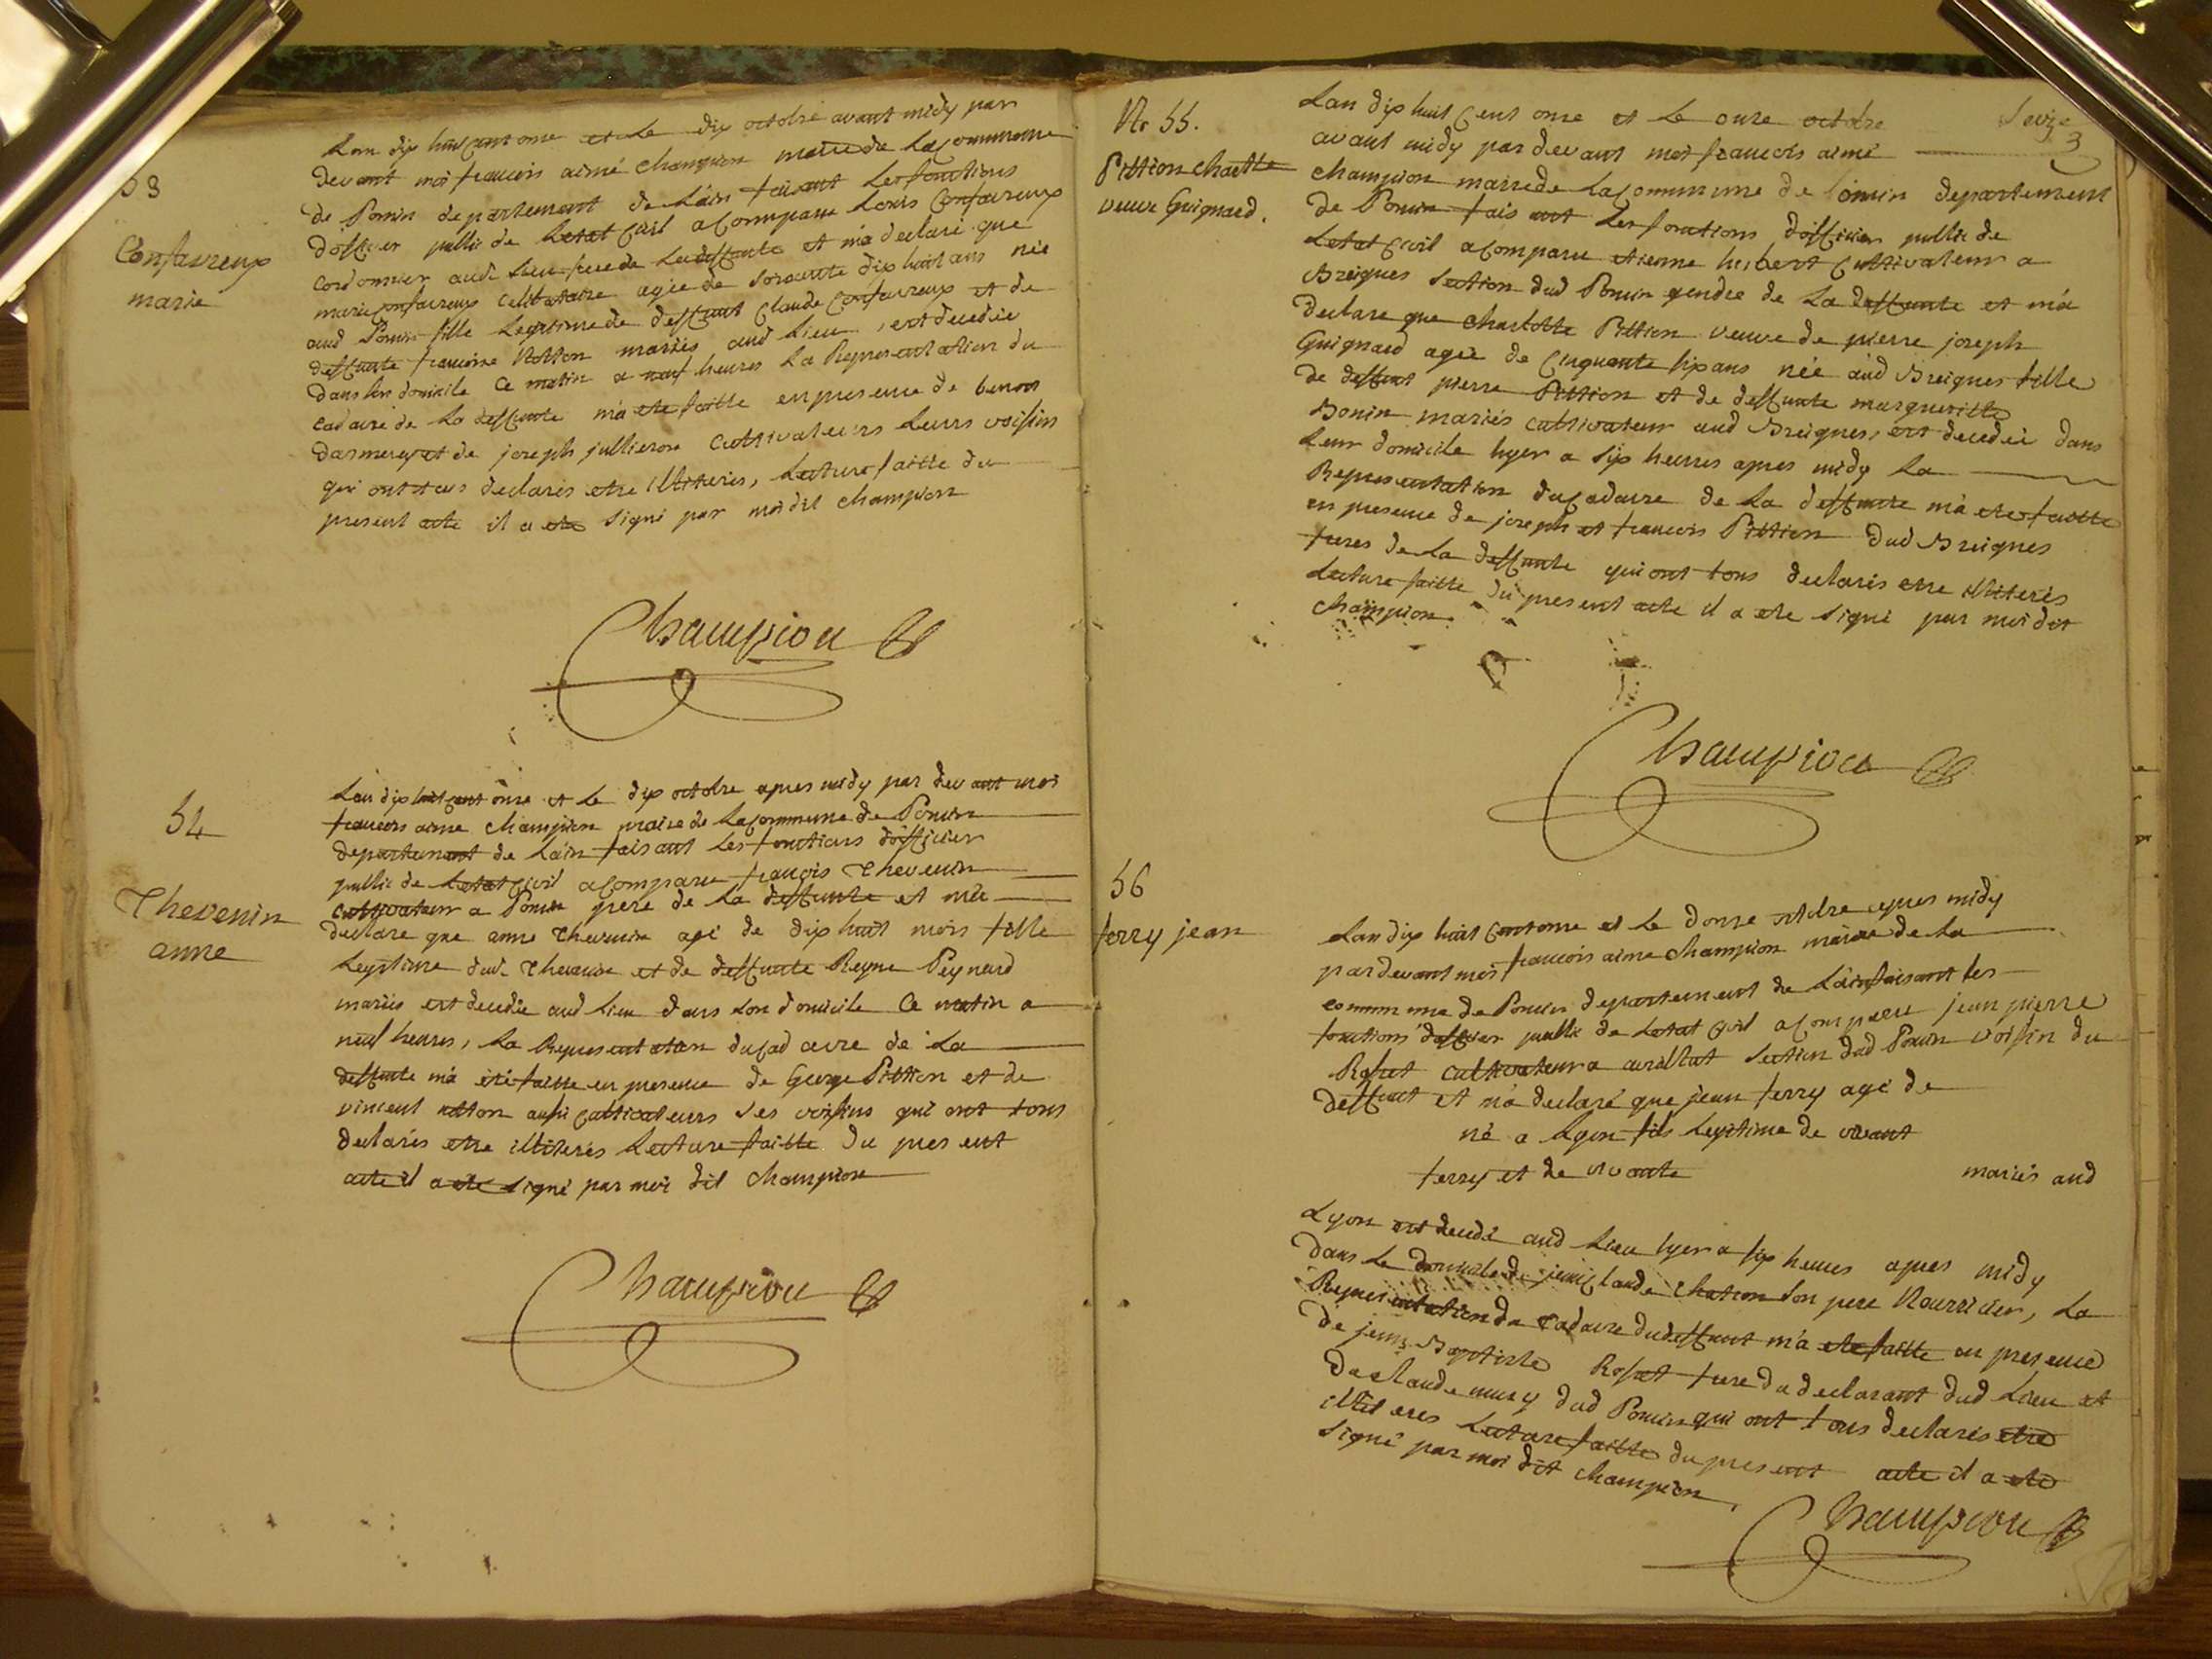 53
Confavreux
marie
Lan dix huit cent onse et Le dix octobre avant midy par
devant moi francois aimé Champion maire de La commune
de Poncin departement de Lain faisant Les fonctions
dofficier public de Letat Civil a Comparu Louis Confavreux
Cordonnier audt Lieu frere de La deffunte et ma declaré que
marie Confavreux Celibataire agée de soixante dix huit ans née
aud Poncin fille Legitime de deffunt Claude Confavreux et de
deffunte francoise mariés aud Lieu, est decedée
dans son domicile Ce matin a neuf heures La Representation du
Cadavre de La deffunte m'a ete faitte en presence de benoit
et de joseph jullieron Cultivateurs Leurs voisins
qui ont tous declarés etre illiterés, Lecture faitte du
present acte il a ete signé par moi dit Champion
Champion
54
Thevenin
anne
Lan dix huit cent onse et Le dix octobre apres midy par devant moi
francois aime Champion maire de La Commune de Poncin
departement de Lain faisant Les fonctions dofficier
public de Letat Civil a Comparu francois Thevenin
Cultivateur a Poncin pere de La deffunte et m'a
declare que anne Thevenin agé de dix huit mois fille
Legitime dudt Thevenin et de deffunte Reyne Peynard
mariés est decedée aud Lieu dans son domicile Ce matin a
neuf heures, La Representation du Cadavre de La
deffunte m'a été faitte en presence de George Pittion et de
vincent aussi Cultivateurs ses voisins qui ont tous
declarés etre illiterés Lecture faitte du present
acte il a ete signé par moi dit Champion
Champion
Nr 55.
Pittion Charlotte
veuve Guignard.
seize
3
Lan dix huit Cent onse et Le onse octobre
avant midy par devant moi francois aimé
Champion maire de La Commune de Poncin departement
de Poncin faisant Les fonctions dofficier public de
Letat Civil a Comparu etienne herbert Cultivateur a
Breignes Section dud Poncin gendre de La deffunte et m'a
declare que Charlotte Pittion veuve de pierre joseph
Guignard agée de Cinquante six ans née aud Breignes fille
de deffunt pierre Pittion et de deffunte margueritte
Bonin mariés cultivateur aud Breignes, est decedée dans
Leur domicile hyer a six heures apres midy La
Representation du Cadavre de La deffunte m'a ete faitte
en presence de joseph et francois Pittion dud Breignes
freres de La deffunte qui ont tous declarés etre illiterés
Lecture faitte du present acte il a ete signé par moi dit
Champion
Champion
56
ferry jean
Lan dix huit Cent onse et Le douse octobre apres midy
par devant moi francois aime Champion maire de La
commune de Poncin departement de Lain faisant Les
fonctions dofficier public de Letat Civil a Comparu jean pierre
Rosset Cultivateur a Section dud Poncin voisin du
deffunt et m'a declaré que jean ferry agé de
né a Lyon fils Legitime de vivant
ferry et de vivante mariés aud
Lyon est decedé aud Lieu hyer a six heures apres midy
dans Le domicile de jean Claude Chation son pere Nourricier, La
Representation du Cadavre du deffunt m'a ete faitte en presence
de jean Baptiste Rosset frere du declarant dud Lieu et
de claude dud Poncin qui ont tous declarés etre
illiterés Lecture faitte du present acte il a ete
signé par moi dit Champion,
Champion